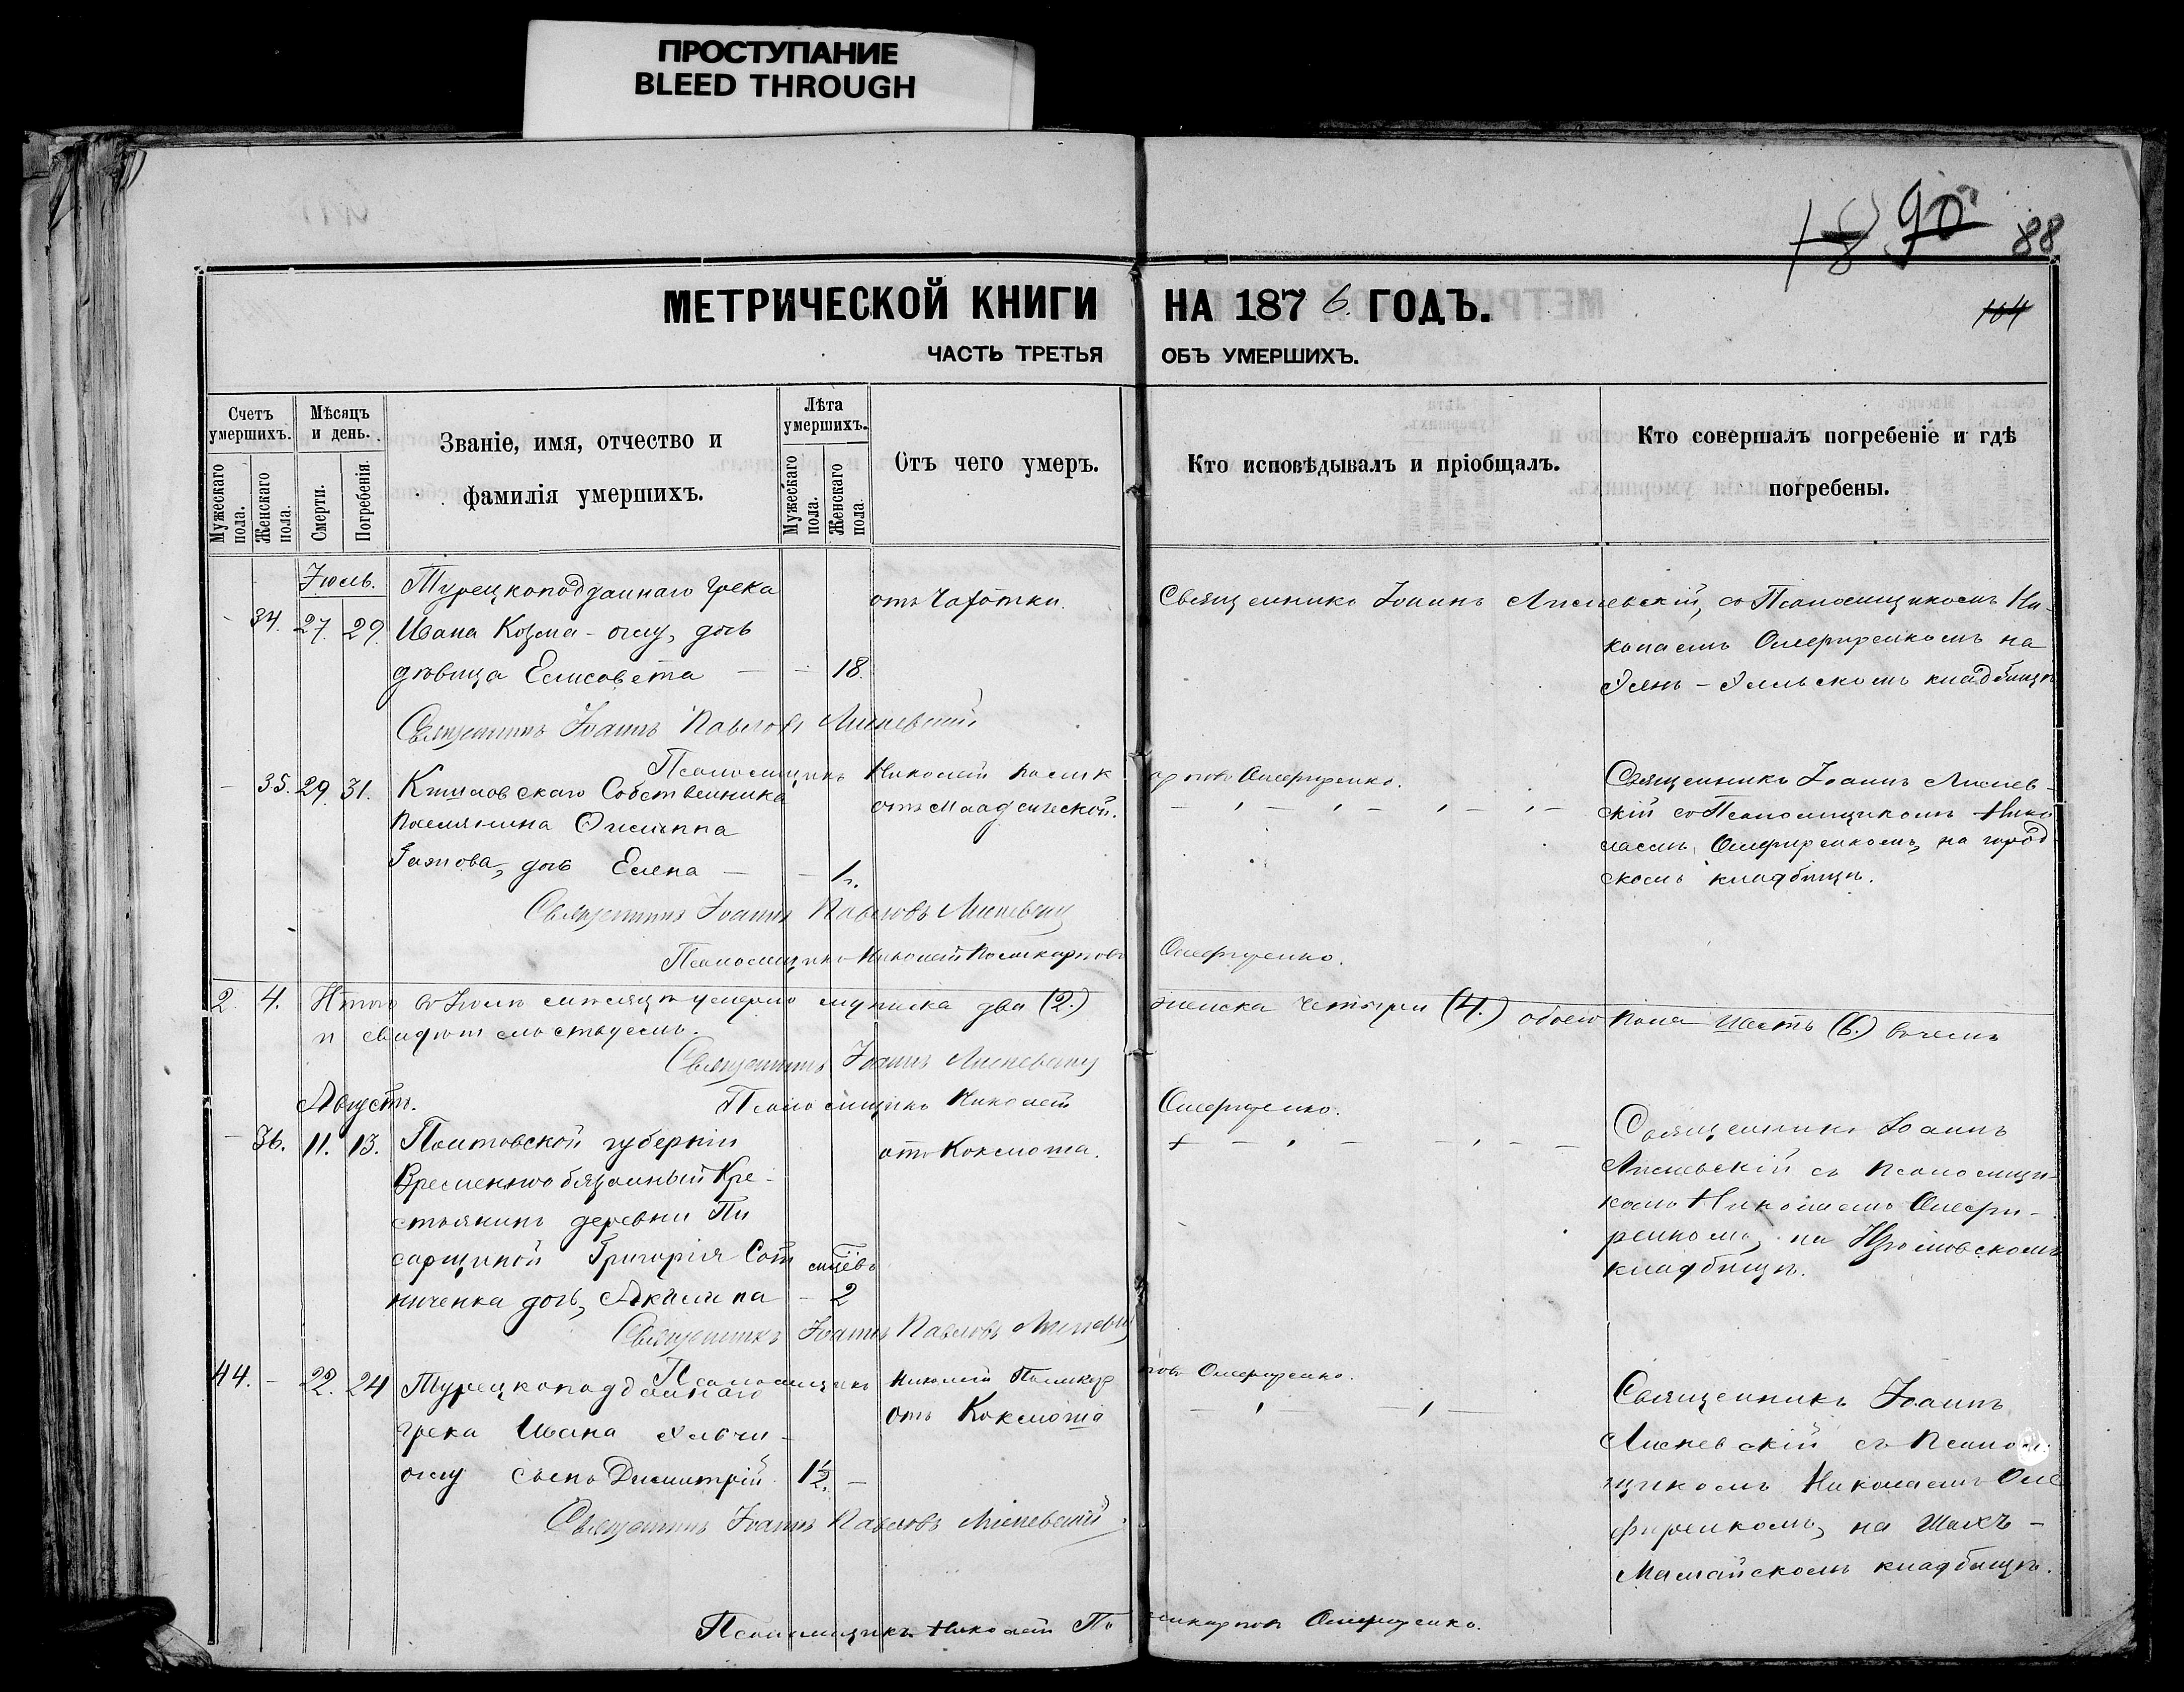 ПРОСТУПАНИЕ
BLEED THROUGH
90
88
МЕТРИЧЕСКОЙ КНИГИ НА 1876. ГОДЪ.
104
ЧАСТЬ ТРЕТЬЯ ОБЪ УМЕРШИХЪ.
Счетъ умершихъ.
Мужескаго пола.
Женскаго пола.
Мѣсяцъ и день.
Смерти.
Погребенія.
Званіе, имя, отчество и
фамилія умершихъ.
Лѣта умершихъ.
Мужескаго пола.
Женскаго пола.
Отъ чего умеръ.
Кто исповѣдывалъ и пріобщалъ.
Кто совершалъ погребеніе и гдѣ
погребены.
Іюль.
- 34. 27. 29. Турецкоподданнаго грека
Ивана Козма-оглу, дочь
дѣвица Елисовета - - 18.
отъ Чахотки.
Священникъ Іоаннъ Лисневскій, со Псаломщикомъ Ни-
колаемъ Олефиренкомъ на
кладбищѣ
Священникъ Іоаннъ Павловъ Лисневскій
Псаломщикъ Николай Поликарповъ Олефиренко.
- 35. 29. 31. Собственника
Поселянина Осиппа
дочь Елена - - 1.
отъ Младенческой.
Священникъ Іоаннъ Лиснев-
скій со Псаломщикомъ Нико
лаемъ Олефиренкомъ, на город
скомъ кладбищѣ.
Священникъ Іоаннъ Павловъ Лисневскій
Псаломщикъ Николай Поликарповъ Олефиренко.
2. 4. Итого въ Іюлѣ мѣсяцѣ умерло мужеска два (2.) женска четыри (4.) обоего пола шесть (6.) в чемъ
и свидѣтельствуемъ.
Священникъ Іоаннъ Лисневскій
Псаломщикъ Николай Олефиренко.
Августъ.
- 36. 11. 13. Полтовской губерніи
Временнообязанный Кре-
стьянинъ деревни Пи
сарщиной Григорія Сот
ниченка дочь, Акилина - 2
отъ Коклюша.
Священникъ Іоаннъ
Лисневскій съ Псаломщи-
комъ Николаемъ Олефи-
ренкомъ, на
кладбищѣ.
Священникъ Іоаннъ Павловъ Лисневскій
Псаломщикъ Николай Поликарповъ Олефиренко.
44. - 22. 24 Турецкоподданаго
грека Ивана
оглу сынъ Димитрій 1 1/2. -
отъ Коклюша
Священникъ Іоаннъ
Лисневскій съ Псалом
щикомъ Николаемъ Оле
фиренкомъ, на Шахъ-
Мамайскомъ кладбищѣ.
Священникъ Іоаннъ Павловъ Лисневскій.
Псаломщикъ Николай Поликарповъ Олефиренко.